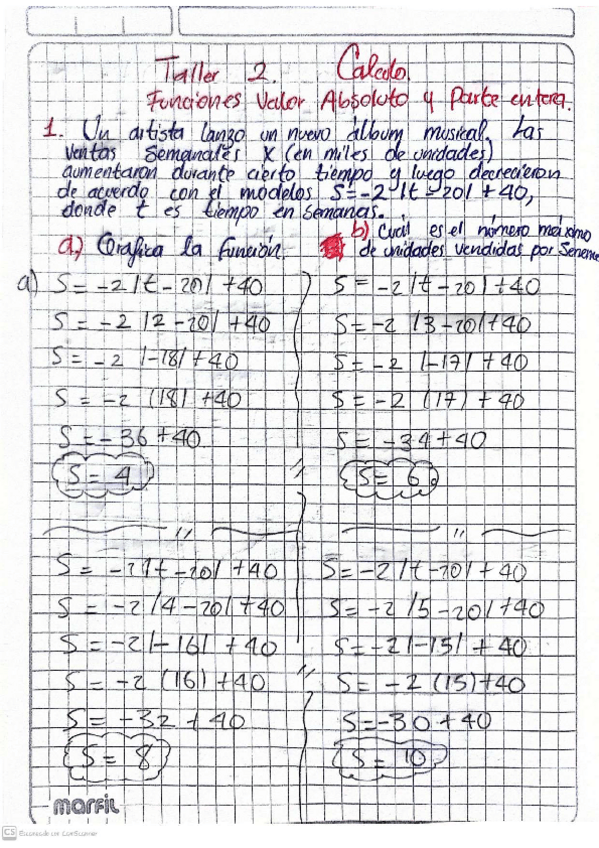 Taller 2. Calculo.
Funciones Valor Absoluto y Parte entera.
1. Un artista lanzo un nuevo álbum musical. Las
ventas semanales X (en miles de unidades)
aumentaron durante cierto tiempo y luego decrecieron
de acuerdo con el modelos S=-2 |t-20| + 40,
donde t es tiempo en semanas.
a) Grafica la función.
b) Cual es el número máximo
de unidades vendidas por Seneme
a) S = -2 |t - 20| + 40
S = -2 |2 - 20| + 40
S = -2 |-18| + 40
S = -2 (18) + 40
S = -36 + 40
S = 4
S = -2 |t - 20| + 40
S = -2 |3 - 20| + 40
S = -2 |-17| + 40
S = -2 (17) + 40
S = -34 + 40
S = 6
S = -2 |t - 20| + 40
S = -2 |4 - 20| + 40
S = -2 |-16| + 40
S = -2 (16) + 40
S = -32 + 40
S = 8
S = -2 |t - 20| + 40
S = -2 |5 - 20| + 40
S = -2 |-15| + 40
S = -2 (15) + 40
S = -30 + 40
S = 10
marfil
CS Escaneado con CamScanner